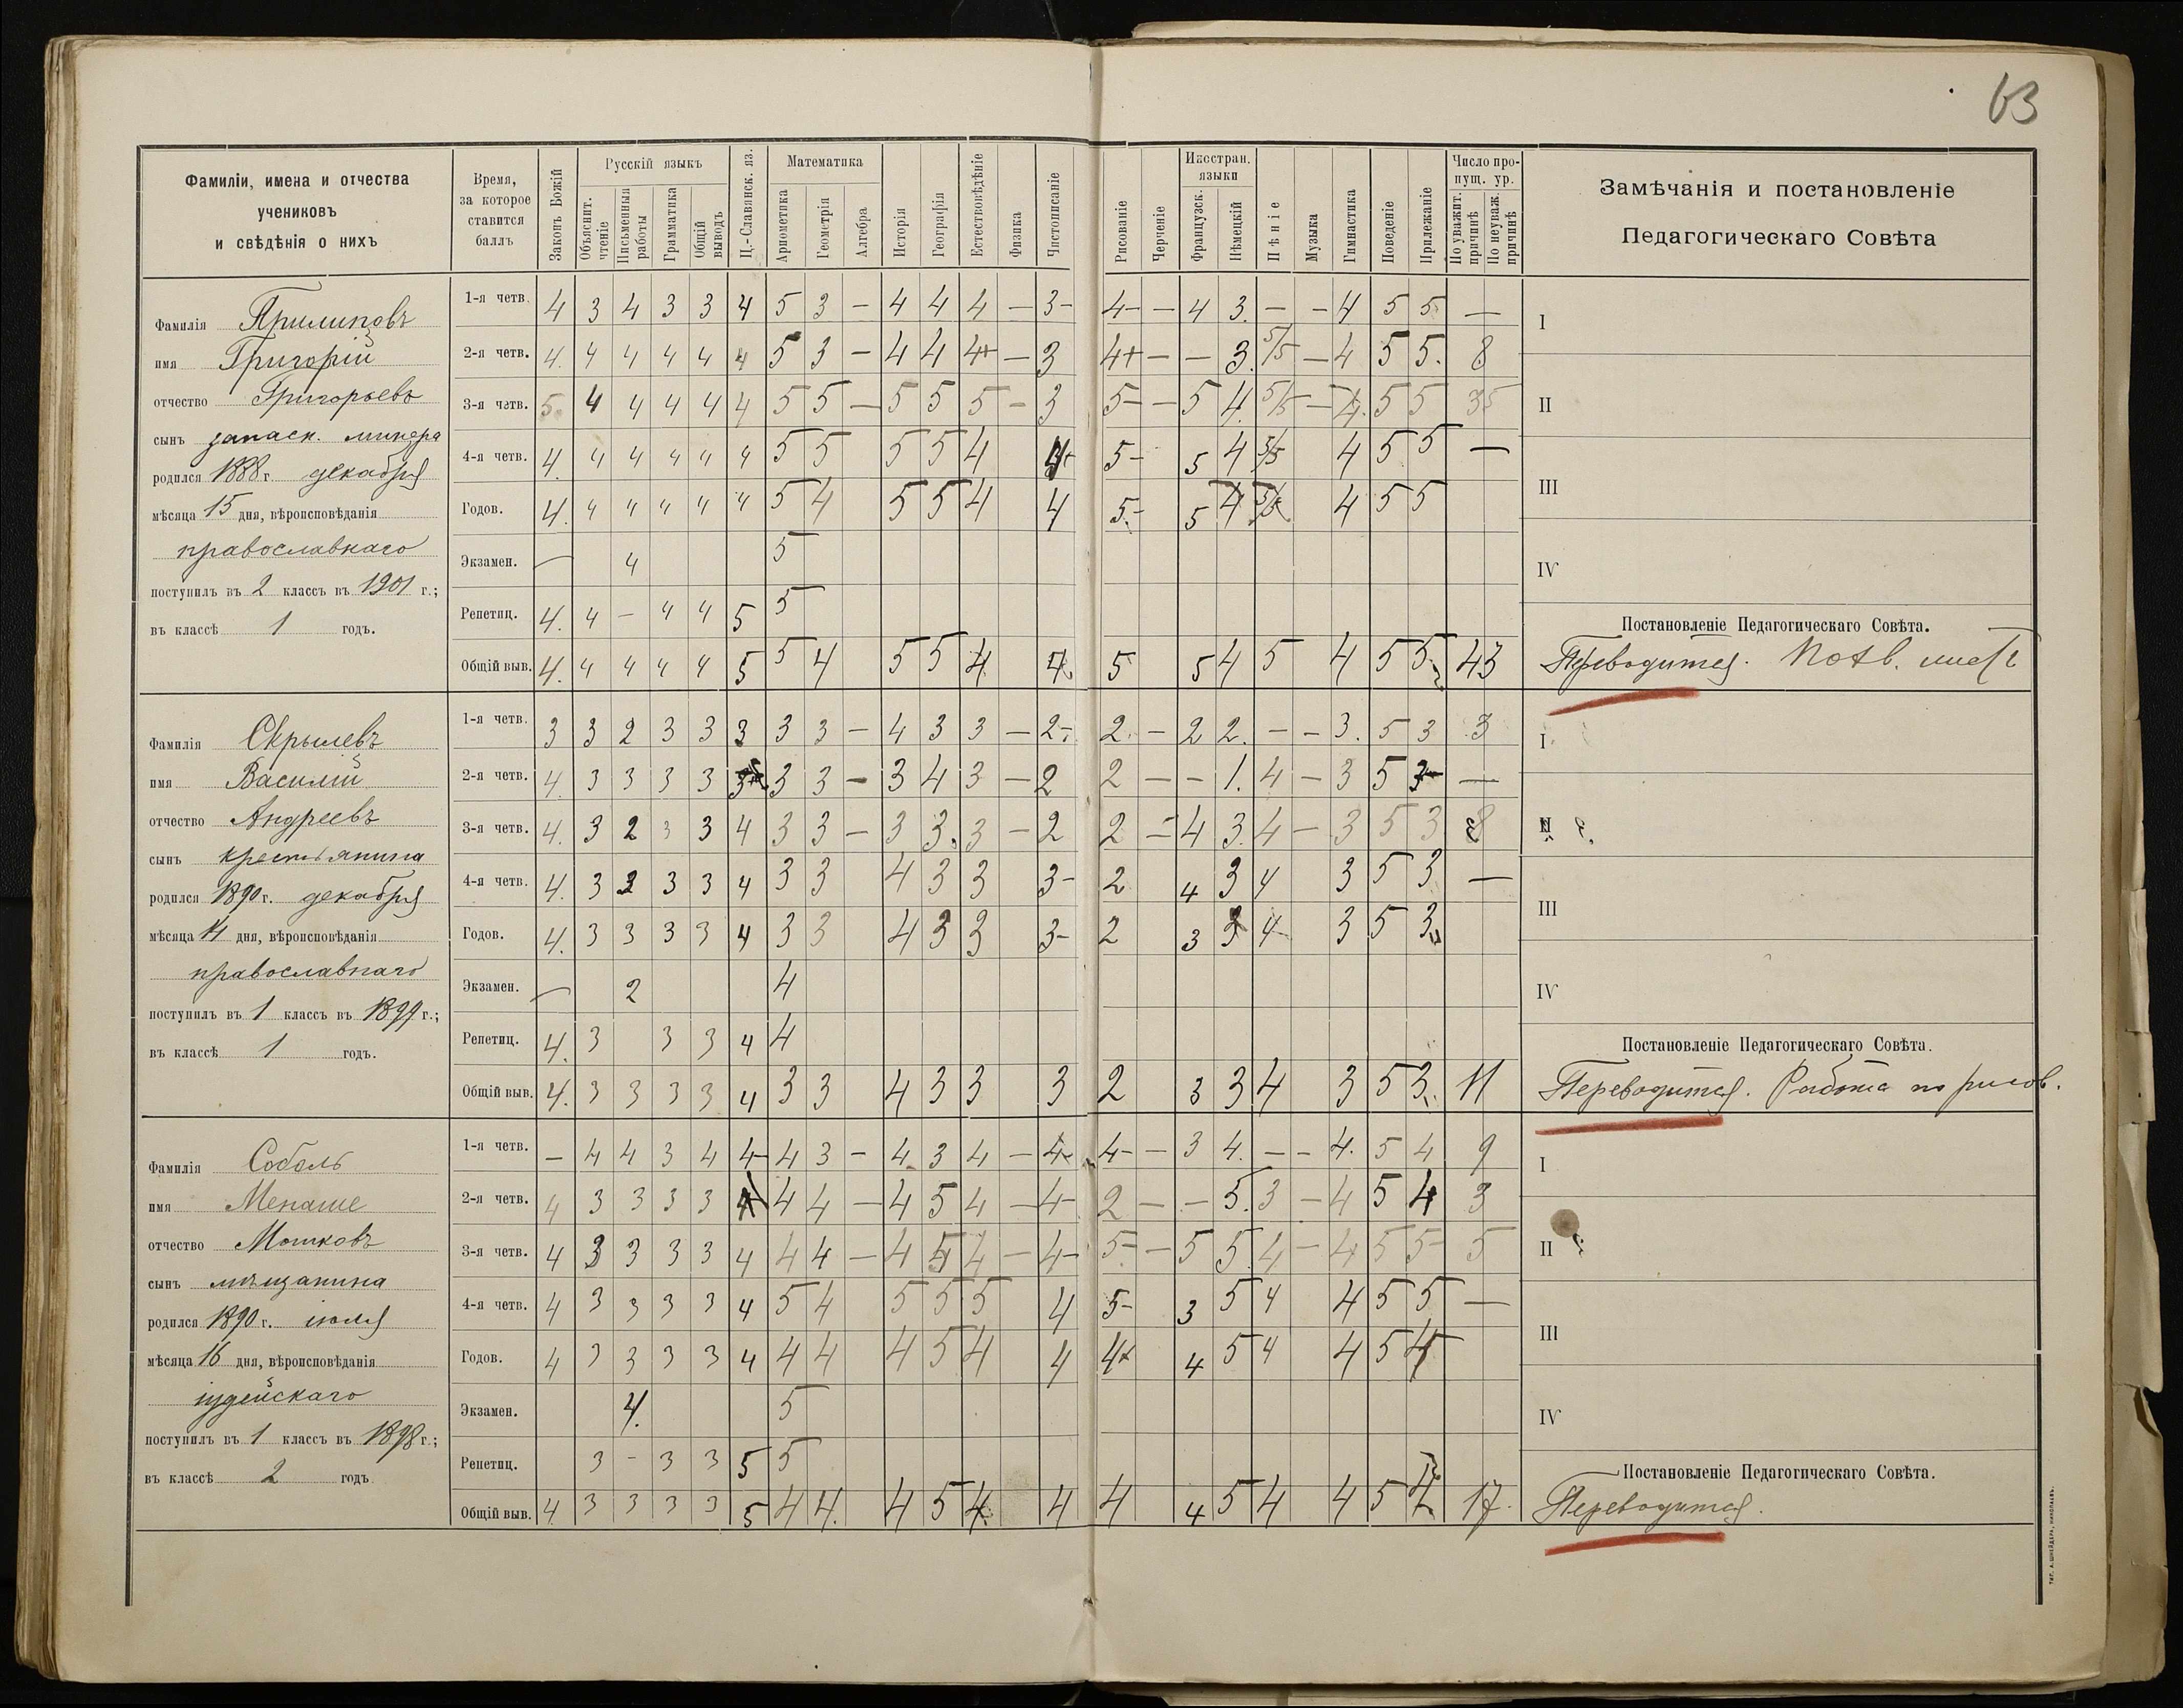 63
Фамиліи, имена и отчества
учениковъ
и свѣдѣнія о нихъ
Время,
за которое
ставится
баллъ
Законъ Божій
Русскій языкъ
Объяснит.
чтеніе
Письменныя
работы
Грамматика
Общій
выводъ
Ц.-Славянск. яз.
Математика
Ариѳметика
Геометрія
Алгебра
Исторія
Географія
Естествовѣдѣніе
Физика
Чистописаніе
Рисованіе
Черченіе
Иностран.
языки
Французск.
Нѣмецкій
Пѣніе
Музыка
Гимнастика
Поведеніе
Прилежаніе
Число про-
пущ. ур.
По уважит.
причинѣ
По неуваж.
причинѣ
Замѣчанія и постановленіе
Педагогическаго Совѣта
Фамилія Прилиповъ
имя Григорій
отчество Григорьевъ
сынъ запасн.
родился 1888 г. декабря
мѣсяца 15 дня, вѣроисповѣданія
православнаго
поступилъ въ 2 классъ въ 1901 г.;
въ классѣ 1 годъ.
1-я четв. 4 3 4 3 3 4 5 3 — 4 4 4 — 3- 4- — 4 3. — — 4 5 5 —
2-я четв. 4. 4 4 4 4 4 5 3 — 4 4 4+ — 3 4+ — — 3. 5/5 — 4 5 5. 8
3-я четв. 5. 4 4 4 4 4 5 5 — 5 5 5 — 3 5- — 5 4. 5/5 — 4. 5 5 35
4-я четв. 4. 4 4 4 4 4 5 5 5 5 4 4+ 5- 5 4 5/5 4 5 5 —
Годов. 4. 4 4 4 4 4 5 4 5 5 4 4 5.- 5 4 5/5 4 5 5
Экзамен. — 4 5
Репетиц. 4. 4 — 4 4 5 5
Общій выв. 4. 4 4 4 4 5 5 4 5 5 4 4. 5 5 4 5 4 5 5. 43
I
II
III
IV
Постановленіе Педагогическаго Совѣта.
Переводится. Похв. листъ
Фамилія Скрылевъ
имя Василій
отчество Андреевъ
сынъ крестьянина
родился 1890 г. декабря
мѣсяца 14 дня, вѣроисповѣданія
православнаго
поступилъ въ 1 классъ въ 1899 г.;
въ классѣ 1 годъ.
1-я четв. 3 3 2 3 3 3 3 3 — 4 3 3 — 2-. 2. — 2 2. — — 3. 5 3 3
2-я четв. 4. 3 3 3 3 3 3 3 — 3 4 3 — 2 2 — — 1. 4 — 3 5 3 —
3-я четв. 4. 3 2 3 3 4 3 3 — 3 3. 3 — 2 2 — 4 3. 4 — 3 5 3 8
4-я четв. 4. 3 2 3 3 4 3 3 4 3 3 3- 2 4 3 4 3 5 3 —
Годов. 4. 3 3 3 3 4 3 3 4 3 3 3- 2 3 3 4 3 5 3
Экзамен. — 2 4
Репетиц. 4. 3 3 3 4 4
Общій выв. 4. 3 3 3 3 4 3 3 4 3 3 3 2 3 3 4 3 5 3. 11
I
II
III
IV
Постановленіе Педагогическаго Совѣта.
Переводится. Работа по рисов.
Фамилія Соболь
имя Менаше
отчество Мошковъ
сынъ мѣщанина
родился 1890 г. іюля
мѣсяца 16 дня, вѣроисповѣданія
іудейскаго
поступилъ въ 1 классъ въ 1898 г.;
въ классѣ 2 годъ
1-я четв. — 4 4 3 4 4 4 3 — 4 3 4 — 4- 4- — 3 4. — — 4. 5 4 9
2-я четв. 4 3 3 3 3 4 4 4 — 4 5 4 — 4- 2 — — 5. 3 — 4 5 4 3
3-я четв. 4 3 3 3 3 4 4 4 — 4 5 4 — 4- 5- — 5 5 4 — 4 5 5 5
4-я четв. 4 3 3 3 3 4 5 4 5 5 5 4 5- 3 5 4 4 5 5 —
Годов. 4 3 3 3 3 4 4 4 4 5 4 4 4+ 4 5 4 4 5 4
Экзамен. 4. 5
Репетиц. 3 — 3 3 5 5
Общій выв. 4. 3 3 3 3 5 4 4. 4 5 4. 4 4 4 5 4 4 5 4. 17.
I
II
III
IV
Постановленіе Педагогическаго Совѣта.
Переводится.
тип. А. Шнейдера, Николаевъ.